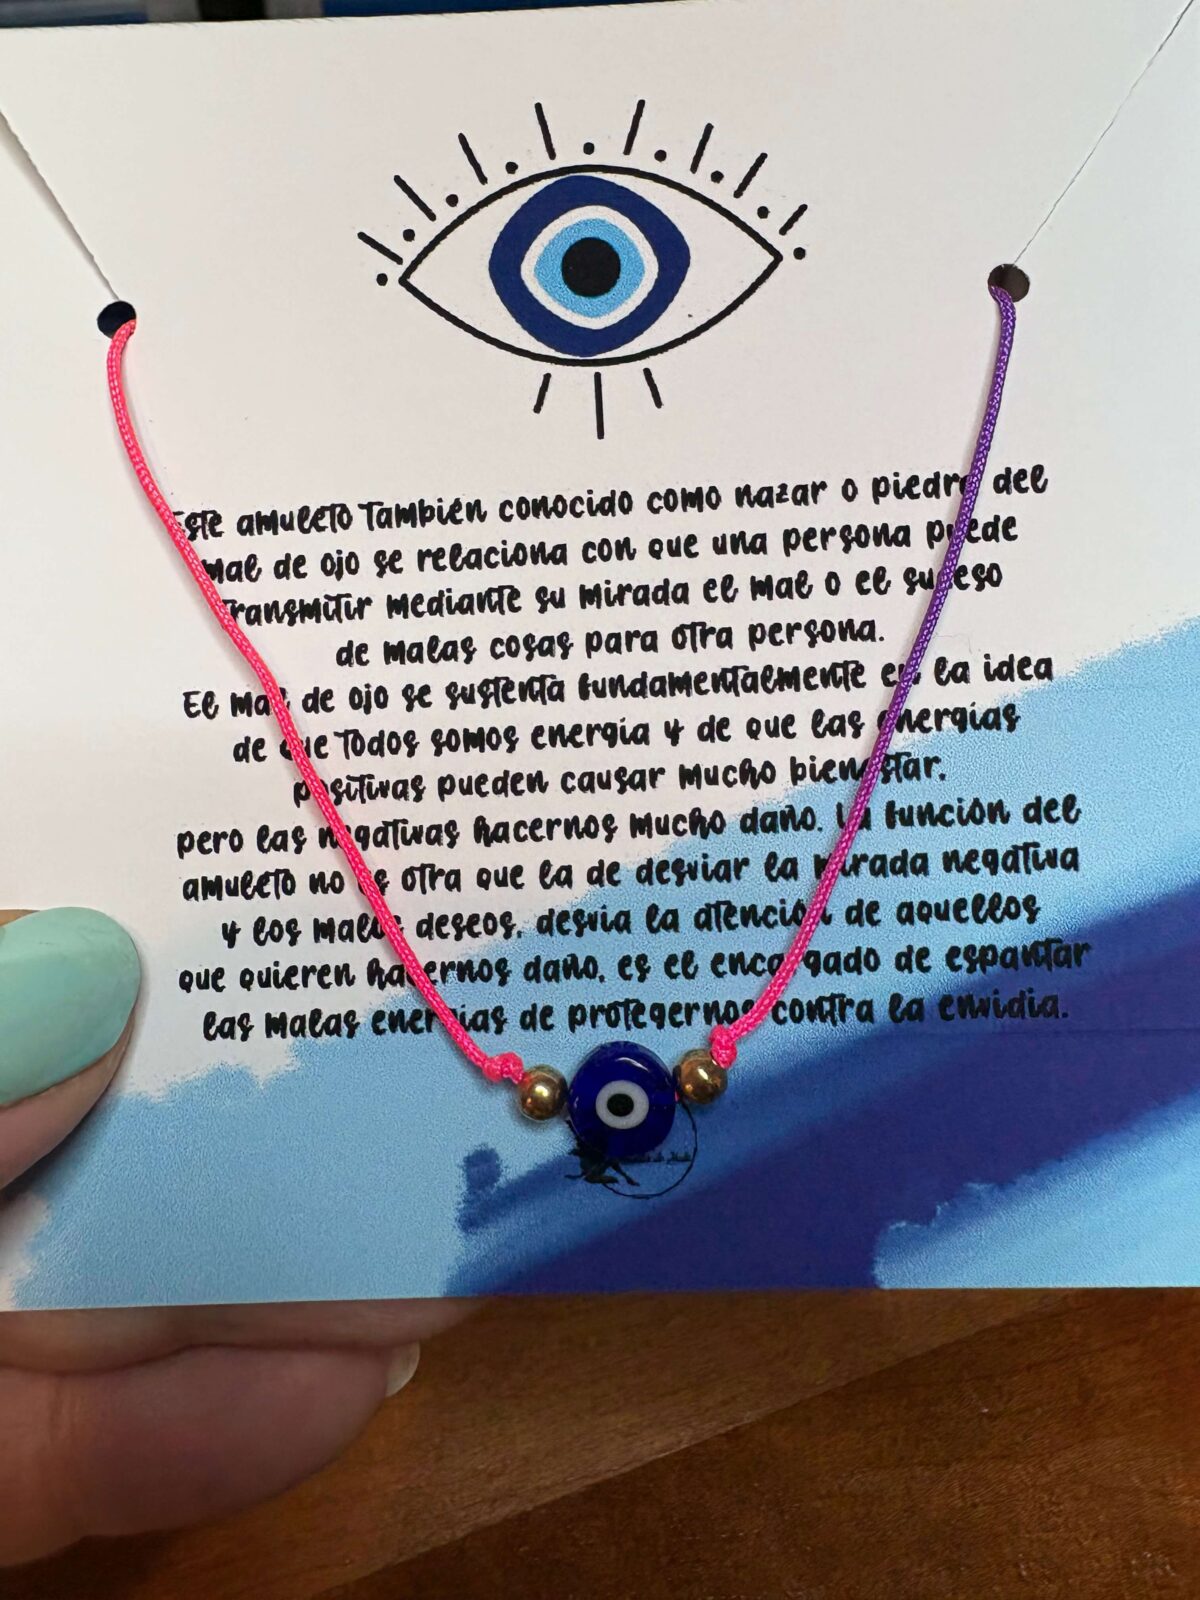 Este amuleto también conocido como nazar o piedra del
mal de ojo se relaciona con que una persona puede
transmitir mediante su mirada el mal o el suceso
de malas cosas para otra persona.
El mal de ojo se sustenta fundamentalmente en la idea
de que todos somos energía y de que las energías
positivas pueden causar mucho bienestar,
pero las negativas hacernos mucho daño. La función del
amuleto no es otra que la de desviar la mirada negativa
y los malos deseos, desvía la atención de aquellos
que quieren hacernos daño, es el encargado de espantar
las malas energías de protegernos contra la envidia.